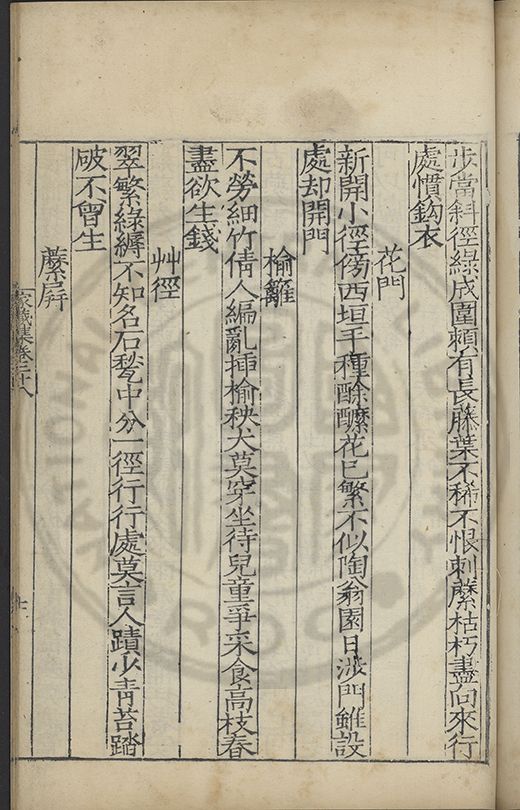 步當斜徑綠成圍頗有長藤葉不稀不恨刺䕷枯朽盡向來行
處慣鈎衣
花門
新開小徑傍西垣手種酴醿花已繁不似陶翁園日渉門雖設
處却開門
榆籬
不勞細竹倩人編亂揷榆秧犬莫穿坐待兒童爭采食高枝春
盡欲生錢
艸徑
翠繁綠縟不知名石甃中分一徑行行處莫言人蹟少靑苔踏
破不曾生
䕷屏
家藏集卷二十八